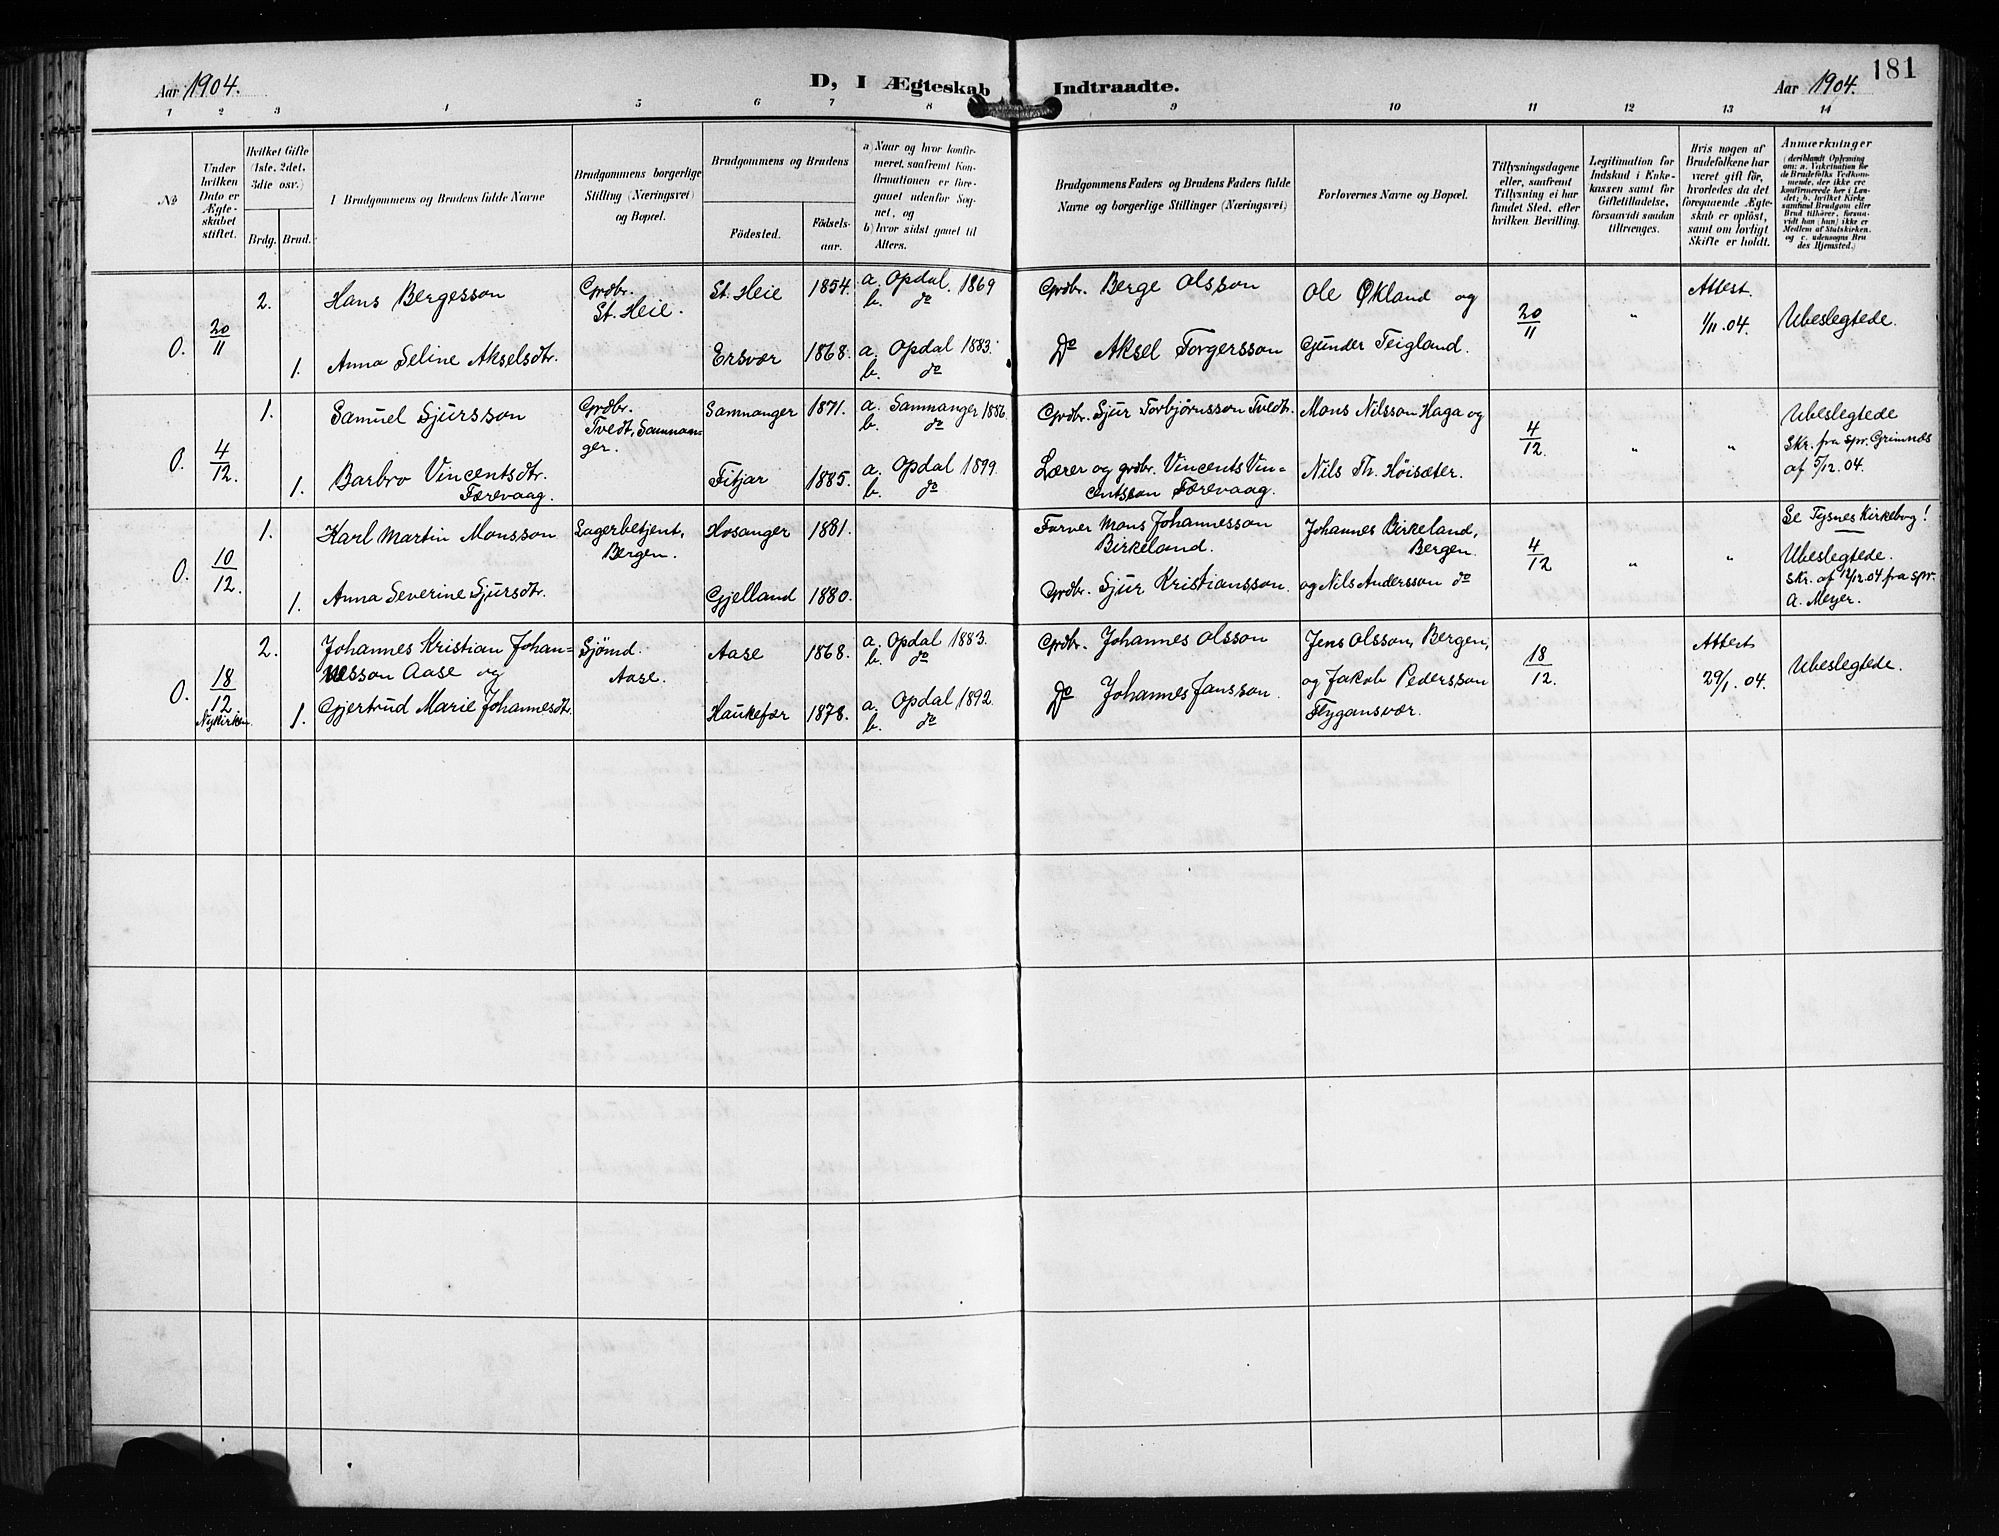 181
Aar 1904.
D, I Ægteskab Indtraadte.
Aar 1904.
1 2 3 4 5 6 7 8 9 10 11 12 13 14
No
Under hvilken Dato er Ægteskabet stiftet.
Hvilket Gifte (1ste, 2det, 3die osv.)
Brdg. Brud.
I Brudgommens og Brudens fulde Navne
Brudgommens borgerlige Stilling (Næringsvei) og Bopæl.
Brudgommens og Brudens
Födested.
Födselsaar.
a) Naar og hvor konfirmeret, saafremt Konfirmationen er foregaaet udenfor Sognet, og
b) hvor sidst gaaet til Alters.
Brudgommens Faders og Brudens Faders fulde Navne og borgerlige Stillinger (Næringsvei)
Forlovernes Navne og Bopæl.
Tillysningsdagene eller, saafremt Tillysning ei har fundet Sted, efter hvilken Bevilling.
Legitimation for Indskud i Enkekassen samt for Giftetilladelse, forsaavidt saadan tiltrænges.
Hvis nogen af Brudefolkene har været gift før, hvorledes da det foregaaende Ægteskab er opløst, samt om lovligt Skifte er holdt.
Anmærkninger
(deriblandt Oplysning om: a. Vakcination for de Brudefolks Vedkommende, der ikke ere konfirmerede her i Landet; b. hvilket Kirkesamfund Brudgom eller Brud tilhører, forsaavidt han (hun) ikke er Medlem af Statskirken, og c. udensogns Brudes Hjemsted.)
0. 20/11 2. Hans Bergesson Grdbr. St. Heie. St. Heie 1854. a. Opdal. 1869 b. do Grdbr. Berge Olsson Ole Økland og 20/11 " Attest. 1/11. 04. Ubeslegtede.
1. Anna Seline Akselsdtr. Ersvær 1868. a. Opdal 1883. b. do Do Aksel Torgersson Gunder Teigland.
0. 4/12 1. Samuel Sjursson Grdbr. Tvedt, Samnanger. Samnanger 1871. a. Samnanger 1886. b. do Grdbr. Sjur Torbjørnsson Tvedt. Mons Nilsson Haga og 4/12. " " Ubeslegtede Skr. fra spr. Grimnæs af 5/12. 04.
1. Barbro Vincentsdtr. Færevaag. Fitjar 1885. a. Opdal 1899. b. do Lærer og grdbr. Vincents Vincentsson Færevaag. Nils Th. Höisæter.
0. 10/12. 1. Karl Martin Monsson Lagerbetjent, Bergen. Hosanger 1881. Farver Mons Johannesson Birkeland. Johannes Birkeland, Bergen. 4/12 " " Se Tysnes Kirkebog! Ubeslegtede. Skr. af 12/12. 04 fra spr. A. Meyer.
1. Anna Severine Sjursdtr. Gjelland 1880. Grdbr. Sjur Kristiansson. og Nils Andersson do
0. 18/12. Nykirken 2. Johannes Kristian Johannesson Aase og Sjømd. Aase. Aase 1868. a. Opdal 1883. b. do Grdbr. Johannes Olsson Jens Olsson, Bergen, 18/12. Attest 29/1. 04. Ubeslegtede.
1. Gjertrud Marie Johannesdtr. Haukefær 1878. a. Opdal 1892. b. do Do Johannes Jansson. og Jakob Pedersson Flygansvær.